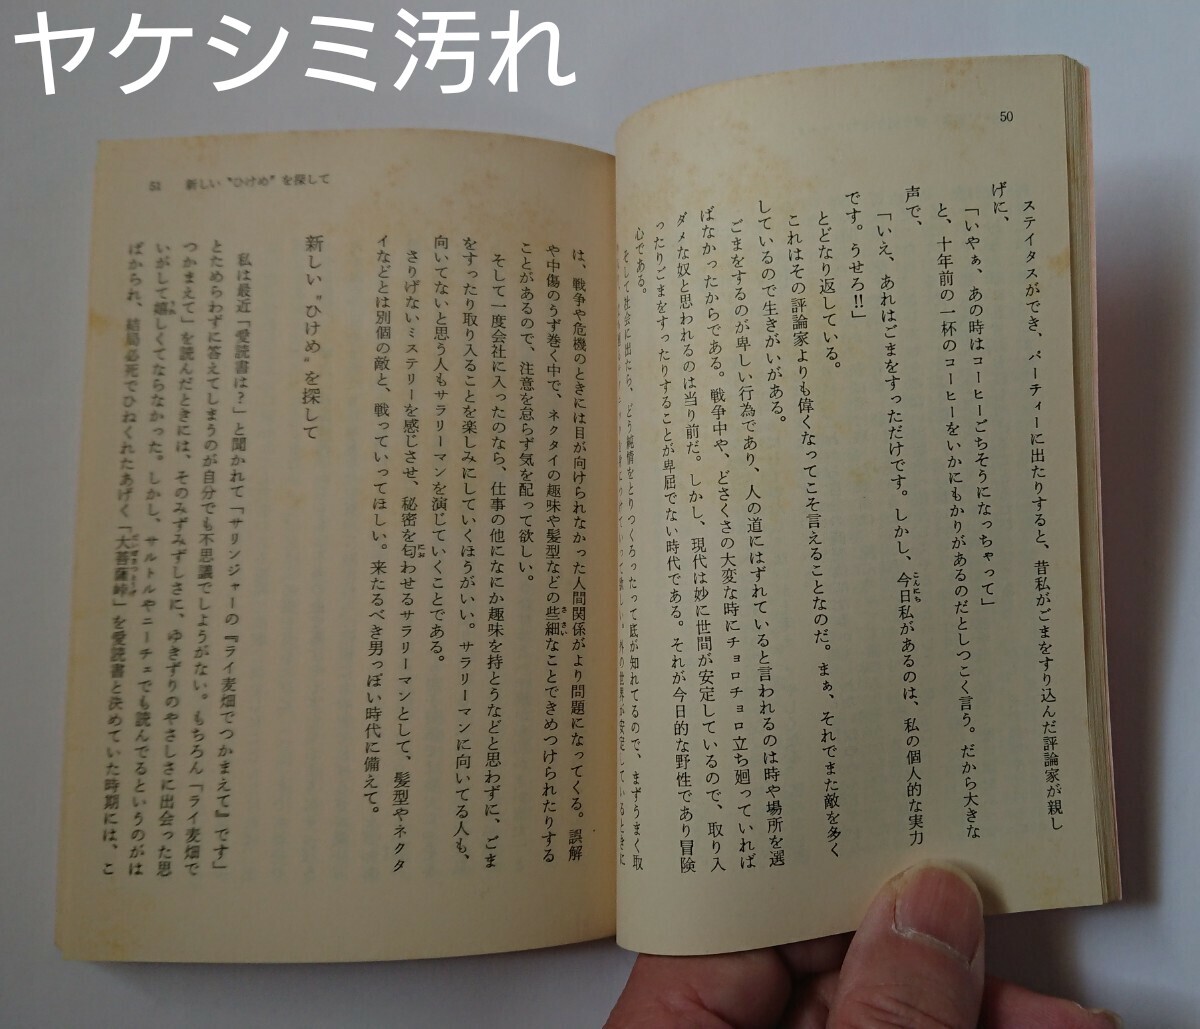 ヤケシミ汚れ
50
ステイタスができ、パーティーに出たりすると、昔私がごまをすり込んだ評論家が親し
げに、
「いやぁ、あの時はコーヒーごちそうになっちゃって」
と、十年前の一杯のコーヒーをいかにもかりがあるのだとしつこく言う。だから大きな
声で、
「いえ、あれはごまをすっただけです。しかし、今日私があるのは、私の個人的な実力
です。うせろ!!」
とどなり返している。
これはその評論家よりも偉くなってこそ言えることなのだ。まぁ、それでまた敵を多く
しているので生きがいがある。
ごまをするのが卑しい行為であり、人の道にはずれていると言われるのは時や場所を選
ばなかったからである。戦争中や、どさくさの大変な時にチョロチョロ立ち廻っていれば
ダメな奴と思われるのは当り前だ。しかし、現代は妙に世間が安定しているので、取り入
ったりごまをすったりすることが卑屈でない時代である。それが今日的な野性であり冒険
心である。
をして社会に出たら、どう純情をとりつくろったって底が知れてるので、まずうまく取
51 新しい〝ひけめ〟を探して
は、戦争や危機のときには目が向けられなかった人間関係がより問題になってくる。誤解
や中傷のうず巻く中で、ネクタイの趣味や髪型などの些細なことできめつけられたりする
ことがあるので、注意を怠らず気を配って欲しい。
そして一度会社に入ったのなら、仕事の他になにか趣味を持とうなどと思わずに、ごま
をすったり取り入ることを楽しみにしていくほうがいい。サラリーマンに向いてる人も、
向いてないと思う人もサラリーマンを演じていくことである。
さりげないミステリーを感じさせ、秘密を匂わせるサラリーマンとして、髪型やネクタ
イなどとは別個の敵と、戦っていってほしい。来たるべき男っぽい時代に備えて。
新しい〝ひけめ〟を探して
私は最近「愛読書は?」と聞かれて「サリンジャーの『ライ麦畑でつかまえて』です」
とためらわずに答えてしまうのが自分でも不思議でしようがない。もちろん「ライ麦畑で
つかまえて」を読んだときには、そのみずみずしさに、ゆきずりのやさしさに出会った思
いがして嬉しくてならなかった。しかし、サルトルやニーチェでも読んでるというのがは
ばかられ、結局必死でひねくれたあげく「大菩薩峠」を愛読書と決めていた時期には、こ